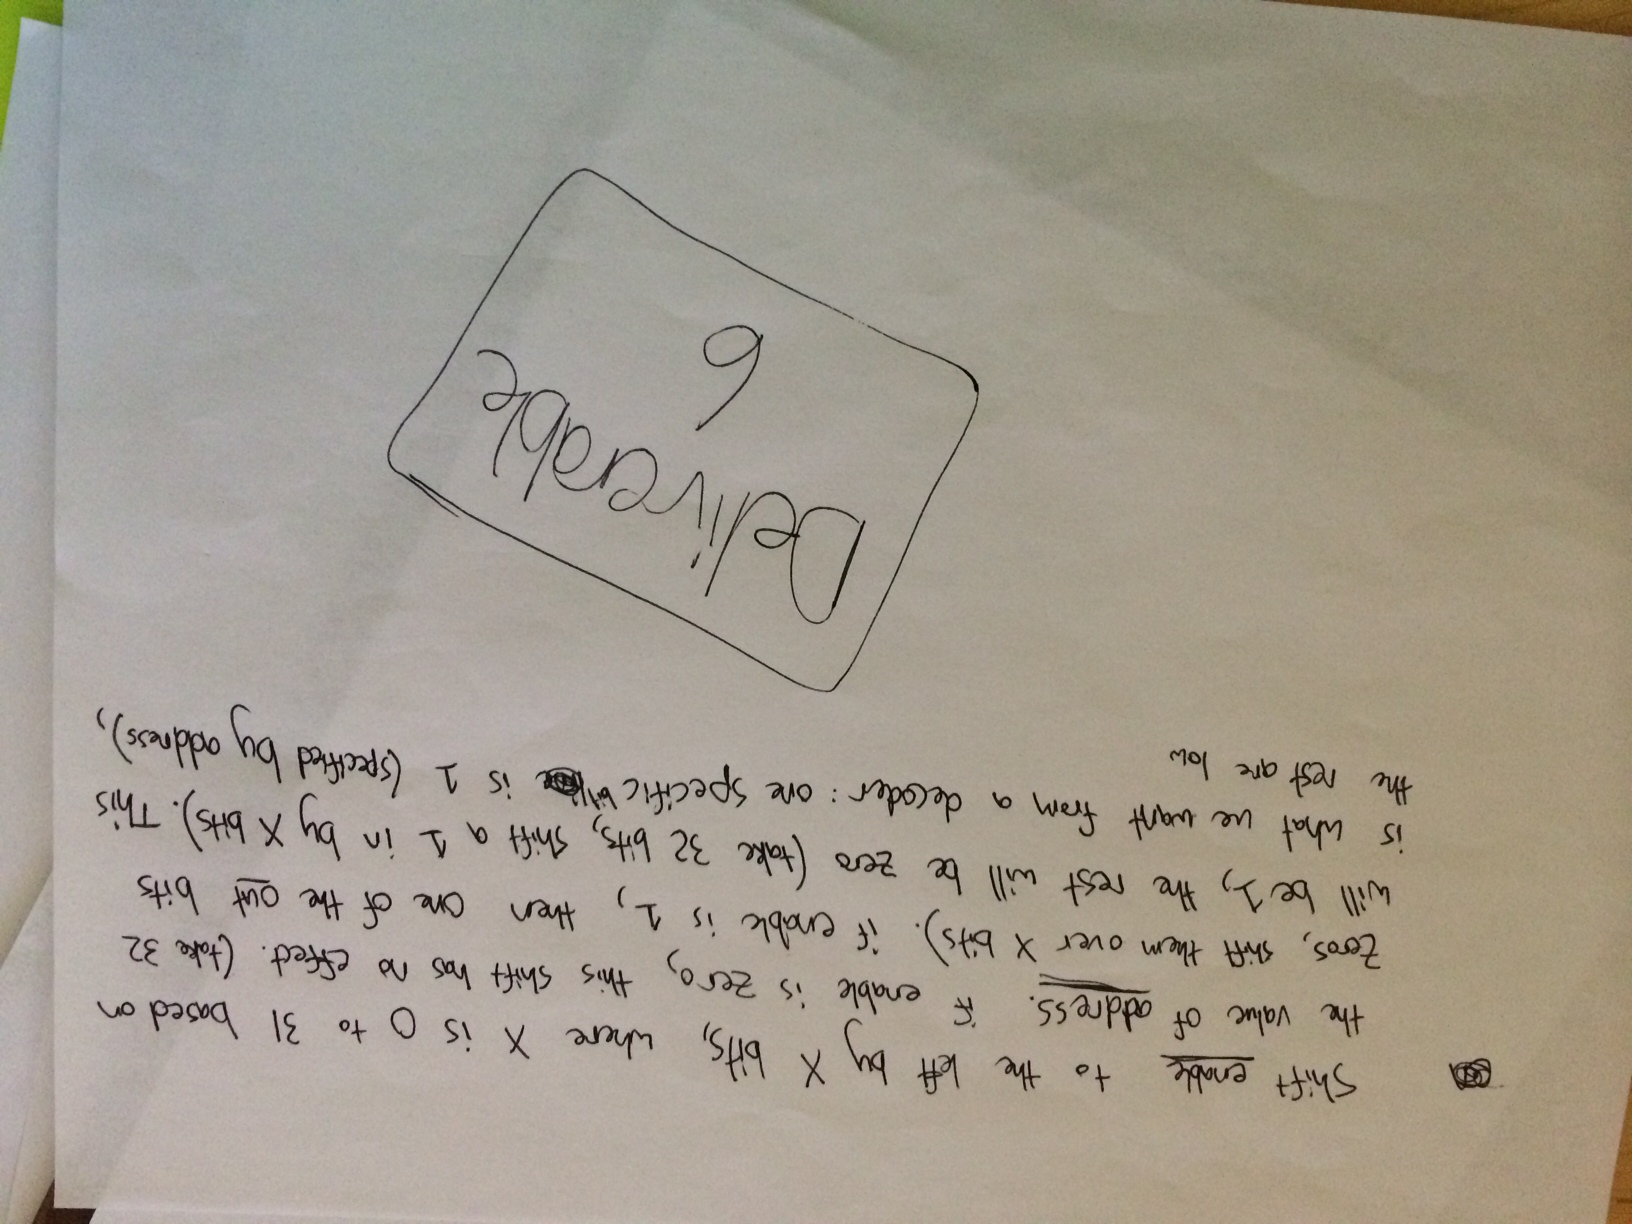 Shift enable to the left by X bits, where X is 0 to 31 based on
the value of address. if enable is zero, this shift has no effect. (take 32
zeros, shift them over X bits). if enable is 1, then one of the out bits
will be 1, the rest will be zero (take 32 bits, shift a 1 in by X bits). This
is what we want from a decoder: one specific bit is 1 (specified by address),
the rest are low
Deliverable
6